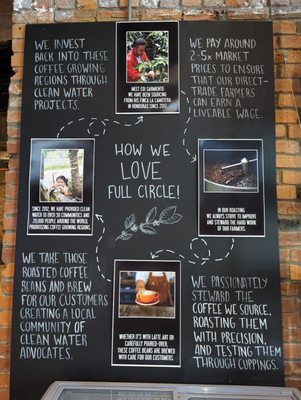 WE INVEST
BACK INTO THESE
COFFEE GROWING
REGIONS THROUGH
CLEAN WATER
PROJECTS.
MEET GIX SARMIENTO.
WE HAVE BEEN SOURCING
FROM HIS FINCA LA CAMOTERA
IN HONDURAS SINCE 2012.
WE PAY AROUND
2-5x MARKET
PRICES TO ENSURE
THAT OUR DIRECT-
TRADE FARMERS
CAN EARN A
LIVEABLE WAGE.
HOW WE
LOVE
FULL CIRCLE!
SINCE 2012, WE HAVE PROVIDED CLEAN
WATER TO OVER 50 COMMUNITIES AND
20,000 PEOPLE AROUND THE WORLD,
PRIORITIZING COFFEE GROWING REGIONS.
IN OUR ROASTING
WE ALWAYS STRIVE TO IMPROVE
AND STEWARD THE HARD WORK
OF OUR FARMERS.
WE TAKE THOSE
ROASTED COFFEE
BEANS AND BREW
FOR OUR CUSTOMERS
CREATING A LOCAL
COMMUNITY OF
CLEAN WATER
ADVOCATES.
WHETHER IT'S WITH LATTE ART OR
CAREFULLY POURED-OVER,
THESE COFFEE BEANS ARE BREWED
WITH CARE FOR OUR CUSTOMERS
WE PASSIONATELY
STEWARD THE
COFFEE WE SOURCE,
ROASTING THEM
WITH PRECISION,
AND TESTING THEM
THROUGH CUPPINGS.